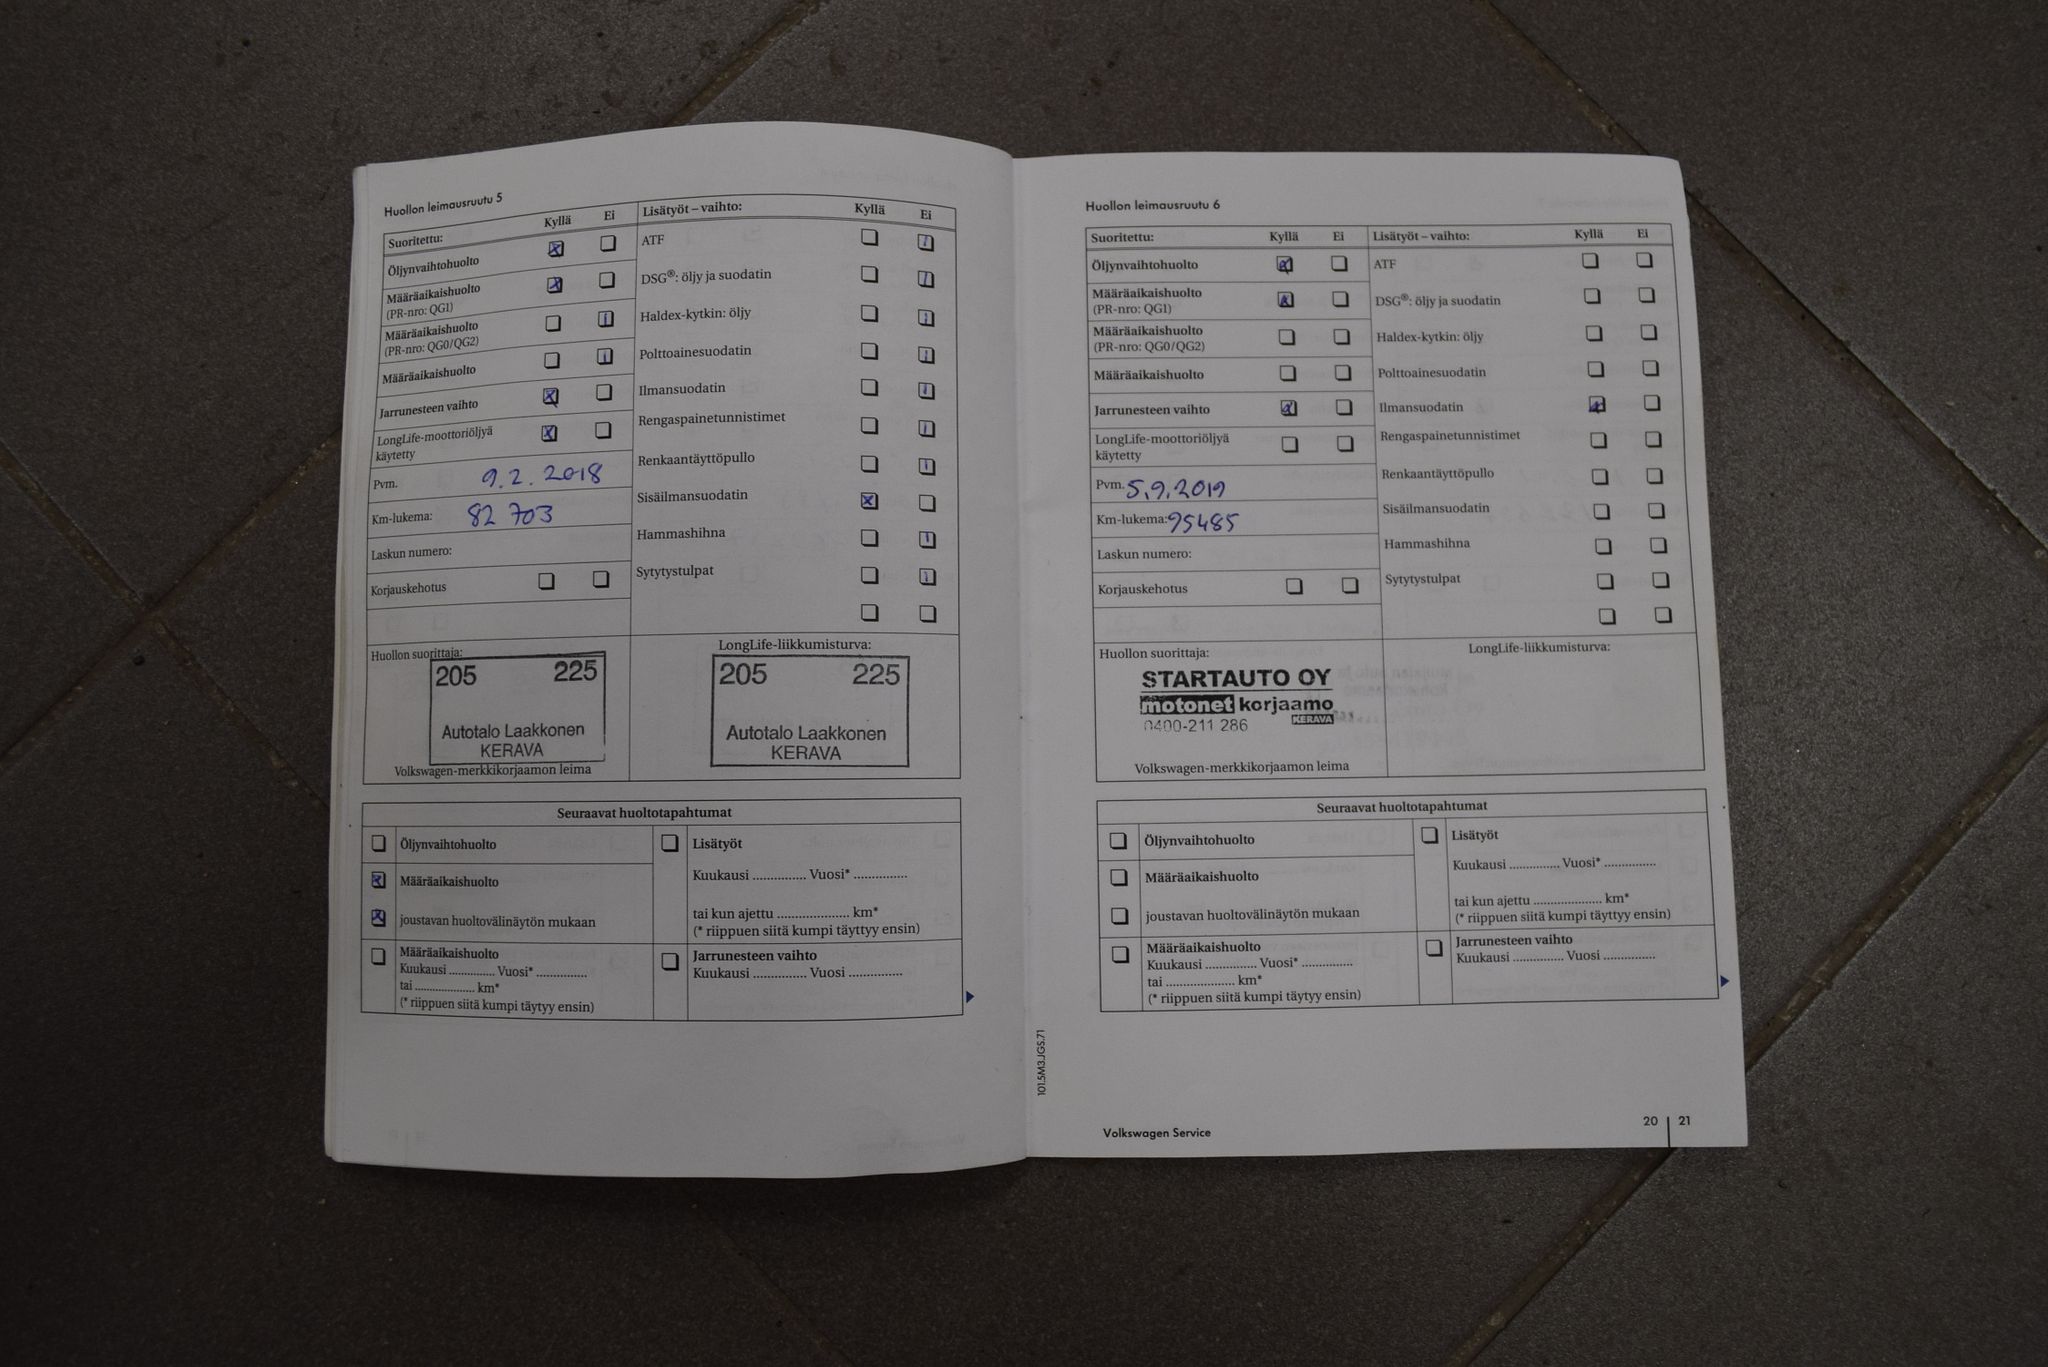 Huollon leimausruutu 5
Suoritettu: Kyllä Ei
Öljynvaihtohuolto
Määräaikaishuolto
(PR-nro: QG1)
Määräaikaishuolto
(PR-nro: QG0/QG2)
Määräaikaishuolto
Jarrunesteen vaihto
LongLife-moottoriöljyä
käytetty
Pvm. 9.2.2018
Km-lukema: 82 703
Laskun numero:
Korjauskehotus
Lisätyöt – vaihto: Kyllä Ei
ATF
DSG®: öljy ja suodatin
Haldex-kytkin: öljy
Polttoainesuodatin
Ilmansuodatin
Rengaspainetunnistimet
Renkaantäyttöpullo
Sisäilmansuodatin
Hammashihna
Sytytystulpat
Huollon suorittaja:
205 225
Autotalo Laakkonen
KERAVA
Volkswagen-merkkikorjaamon leima
LongLife-liikkumisturva:
205 225
Autotalo Laakkonen
KERAVA
Seuraavat huoltotapahtumat
Öljynvaihtohuolto
Määräaikaishuolto
joustavan huoltovälinäytön mukaan
Määräaikaishuolto
Kuukausi .............. Vuosi* ...............
tai .................... km*
(* riippuen siitä kumpi täytyy ensin)
Lisätyöt
Kuukausi ............... Vuosi* ...............
tai kun ajettu .................... km*
(* riippuen siitä kumpi täyttyy ensin)
Jarrunesteen vaihto
Kuukausi ............... Vuosi ...............
Huollon leimausruutu 6
Suoritettu: Kyllä Ei
Öljynvaihtohuolto
Määräaikaishuolto
(PR-nro: QG1)
Määräaikaishuolto
(PR-nro: QG0/QG2)
Määräaikaishuolto
Jarrunesteen vaihto
LongLife-moottoriöljyä
käytetty
Pvm. 5.9.2019
Km-lukema: 95485
Laskun numero:
Korjauskehotus
Lisätyöt – vaihto: Kyllä Ei
ATF
DSG®: öljy ja suodatin
Haldex-kytkin: öljy
Polttoainesuodatin
Ilmansuodatin
Rengaspainetunnistimet
Renkaantäyttöpullo
Sisäilmansuodatin
Hammashihna
Sytytystulpat
Huollon suorittaja:
STARTAUTO OY
motonet korjaamo
0400-211 286 KERAVA
Volkswagen-merkkikorjaamon leima
LongLife-liikkumisturva:
Seuraavat huoltotapahtumat
Öljynvaihtohuolto
Määräaikaishuolto
joustavan huoltovälinäytön mukaan
Määräaikaishuolto
Kuukausi ............... Vuosi* ...............
tai .................... km*
(* riippuen siitä kumpi täytyy ensin)
Lisätyöt
Kuukausi ............... Vuosi* ...............
tai kun ajettu .................... km*
(* riippuen siitä kumpi täyttyy ensin)
Jarrunesteen vaihto
Kuukausi ............... Vuosi ...............
101.5M3.JGS.71
Volkswagen Service
20 | 21